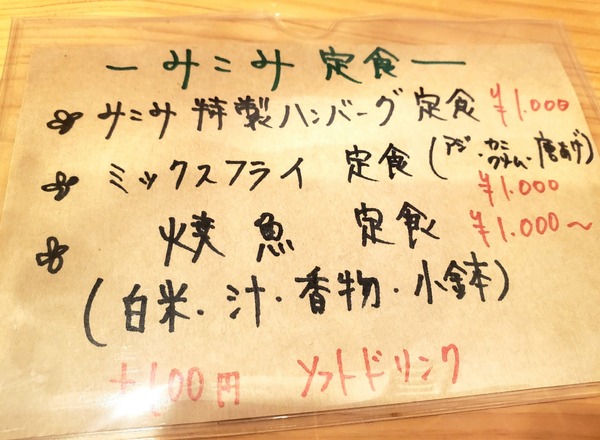 ー みこみ 定食 ー
みこみ 特製ハンバーグ 定食 ¥1.000
ミックスフライ 定食 (アジ・カニクリーム・唐あげ)
¥1.000
焼魚 定食 ¥1.000〜
(白米・汁・香物・小鉢)
+100円 ソフトドリンク